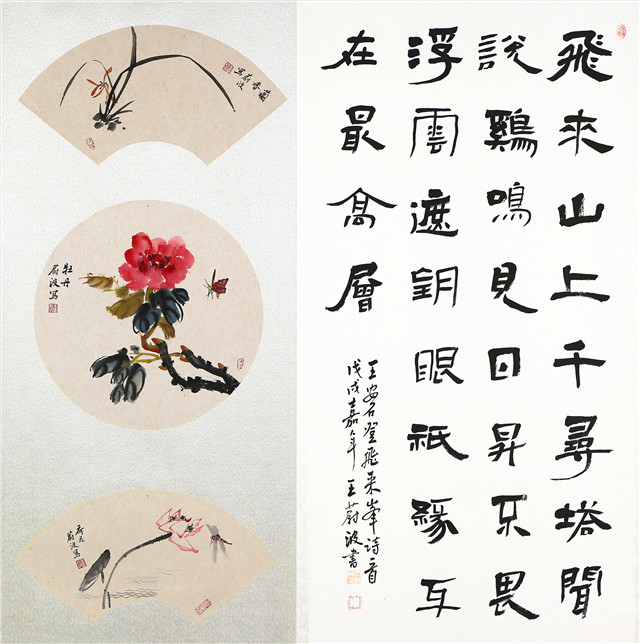 飛來山上千尋塔聞
說鷄鳴見日昇不畏
浮雲遮望眼祇緣身
在最高層
王安石登飛来峯诗一首
戊戌嘉年 王蔚波書
蘭香
蔚波写
牡丹
蔚波写
荷花
蔚波写